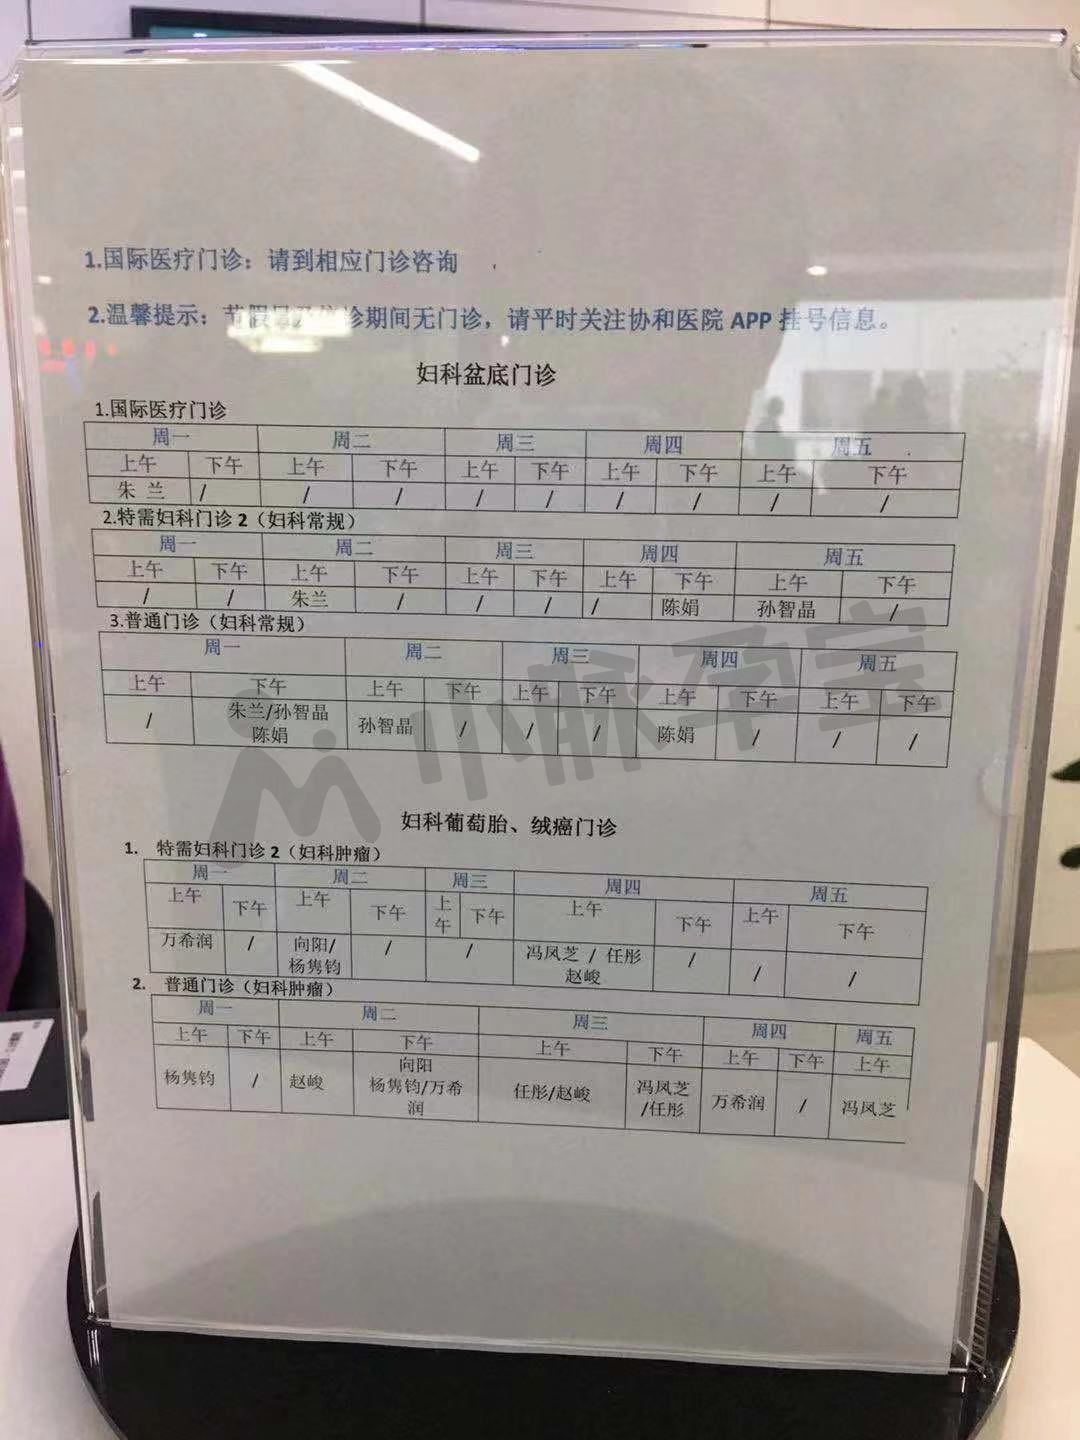 1.国际医疗门诊：请到相应门诊咨询
2.温馨提示：节假日及停诊期间无门诊，请平时关注协和医院 APP 挂号信息。
妇科盆底门诊
1.国际医疗门诊
周一 周二 周三 周四 周五
上午 下午 上午 下午 上午 下午 上午 下午 上午 下午
朱 兰 / / / / / / / / /
2.特需妇科门诊 2（妇科常规）
周一 周二 周三 周四 周五
上午 下午 上午 下午 上午 下午 上午 下午 上午 下午
/ / 朱兰 / / / / 陈娟 孙智晶 /
3.普通门诊（妇科常规）
周一 周二 周三 周四 周五
上午 下午 上午 下午 上午 下午 上午 下午 上午 下午
/ 朱兰/孙智晶 孙智晶 / / / 陈娟 / / /
陈娟
小脉孕宝
妇科葡萄胎、绒癌门诊
1. 特需妇科门诊 2（妇科肿瘤）
周一 周二 周三 周四 周五
上午 下午 上午 下午 上午 下午 上午 下午 上午 下午
万希润 / 向阳/ / / 冯凤芝 / 任彤 / / /
杨隽钧 赵峻
2. 普通门诊（妇科肿瘤）
周一 周二 周三 周四 周五
上午 下午 上午 下午 上午 下午 上午 下午 上午
杨隽钧 / 赵峻 向阳 任彤/赵峻 冯凤芝 万希润 / 冯凤芝
杨隽钧/万希 /任彤
润